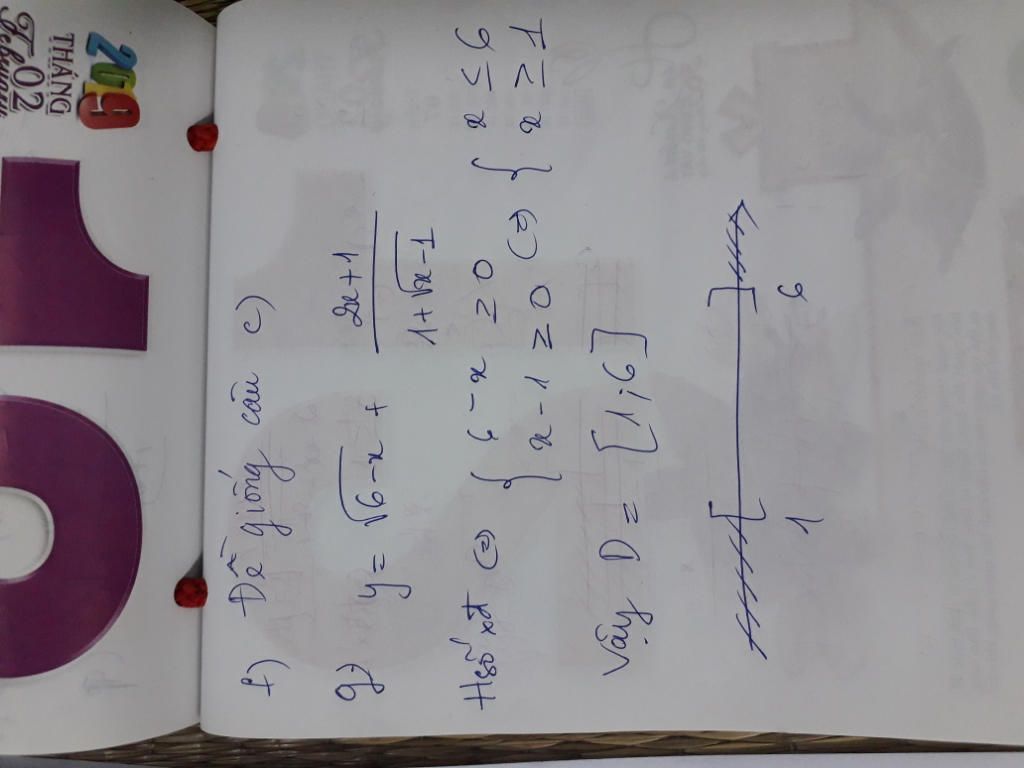 2019
THÁNG
02
February
01
f) Đề giống câu c)
g) y = √(6-x) + (2x+1)/(1+√(x-1))
Hsố xđ (=) { 6-x ≥ 0 (=) { x ≤ 6
x-1 ≥ 0 x ≥ 1
Vậy D = [1;6]
1 6